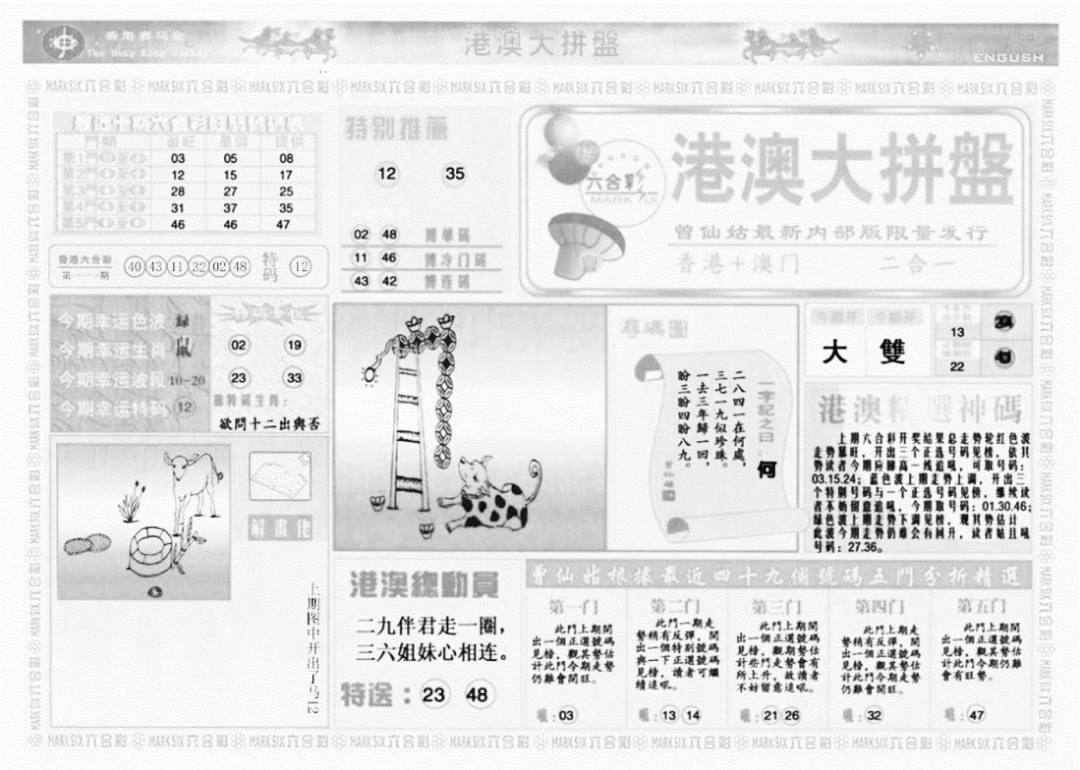 香港赛马会
The Hong Kong Jockey
港澳大拼盤
ENGLISH
MARK SIX 六合彩
門類 最旺 最弱 提供
第1門 03 05 08
第2門 12 15 17
第3門 28 27 25
第4門 31 37 35
第5門 46 46 47
香港六合彩
第一一期
40 43 11 32 02 48
特码 12
特别推薦
12 35
02 48 博单码
11 46 博冷门码
43 42 博连码
六合彩
MARK SIX
港澳大拼盤
曾仙姑最新内部版限量发行
香港+澳门 二合一
今期幸运色波 绿
今期幸运生肖 鼠
今期幸运波段 10-20
今期幸运特码 12
02 19
23 33
猜特碼生肖:
欲問十二出與否
解畫佬
上期图中开出了马12
尋碼圖
一字記之曰:何
二八四一在何處,
三七一九似珍珠。
一去三年歸一回,
盼三盼四盼八九。
今期开 今期开
大 雙
13
22
港澳精選神碼
上期六合彩开奖结果总走势轮红色波
走势最旺，开出三个正选号码见榜，依其
势读者今期应睇高一线追吼，可取号码:
03.15.24; 蓝色波上期走势上调，开出三
个特别号码与一个正选号码见榜，继续读
者不妨留意追吼，今期取号码: 01.30.46;
绿色波上期走势下调见榜，现其势估计
此波今期走势仍难会有回升，读者姑且吼
号码: 27.36。
港澳總動員
二九伴君走一圈，
三六姐妹心相连。
特送: 23 48
曾仙姑根據最近四十九個號碼五門分析精選
第一门
此門上期開
出一個正選號碼
見榜，觀其勢估
計此門今期走勢
仍難會開旺。
吼:03
第二门
此門一期走
勢稍有反彈，開
出一個特別號碼
與一下正選號碼
見榜，讀者可繼
續追吼。
吼:13 14
第三门
此門上期開
出一個正選號碼
見榜，觀期勢估
計些門走勢會有
所上升，故讀者
不妨留意追吼。
吼:21 26
第四门
此門上期走
勢稍有反彈，開
出一個正選號碼
見榜，觀其勢估
計此門今期走勢
仍難會開旺。
吼:32
第五门
此門上期開
出一個正選號碼
見榜，觀其勢估
計此門今期仍難
會有旺勢。
吼:47